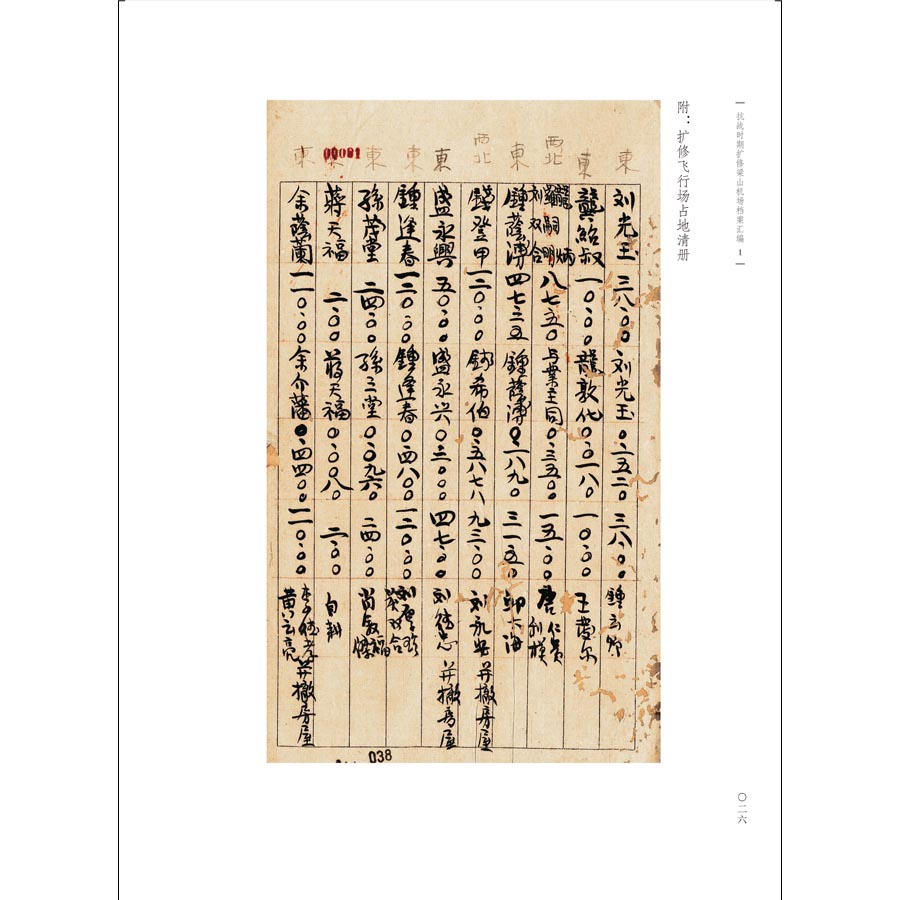 抗战时期扩修梁山机场档案汇编 1
附：扩修飞行场占地清册
東
刘光玉 三八·〇〇 刘光玉 〇·二五二〇 三八·〇〇 鍾云
東
龔紹叔 一〇·〇〇 龍敦化 〇·〇一八〇 一〇·〇〇 王
西北
龍嗣炳 羅嗣明 刘双合 八七·五〇 与業主同 〇·三五〇〇 一五·〇〇 唐仁
東
鍾蔭溥 四七·三五 鍾蔭溥 〇·一八九〇 三一·五〇 大海
西北
登甲 一二〇·〇〇 希伯 〇·五八七八 九三·〇〇 刘永安 并撤房屋
東
盛永興 五〇·〇〇 盛永兴 〇·三〇〇〇 四七·〇〇 刘 并撤房屋
東
鍾逢春 一二〇·〇〇 鍾逢春 〇·四八〇〇 一二〇·〇〇 双合
東
孫茂堂 二四·〇〇 孫三堂 〇·〇九六〇 二四·〇〇
00031
蔣天福 二·〇〇 蔣天福 〇·〇〇八〇 二·〇〇 自耕
東
余蔭蘭 一一〇·〇〇 余介藩 〇·四四〇〇 一一〇·〇〇 黄云亮 并撤房屋
038
〇二六